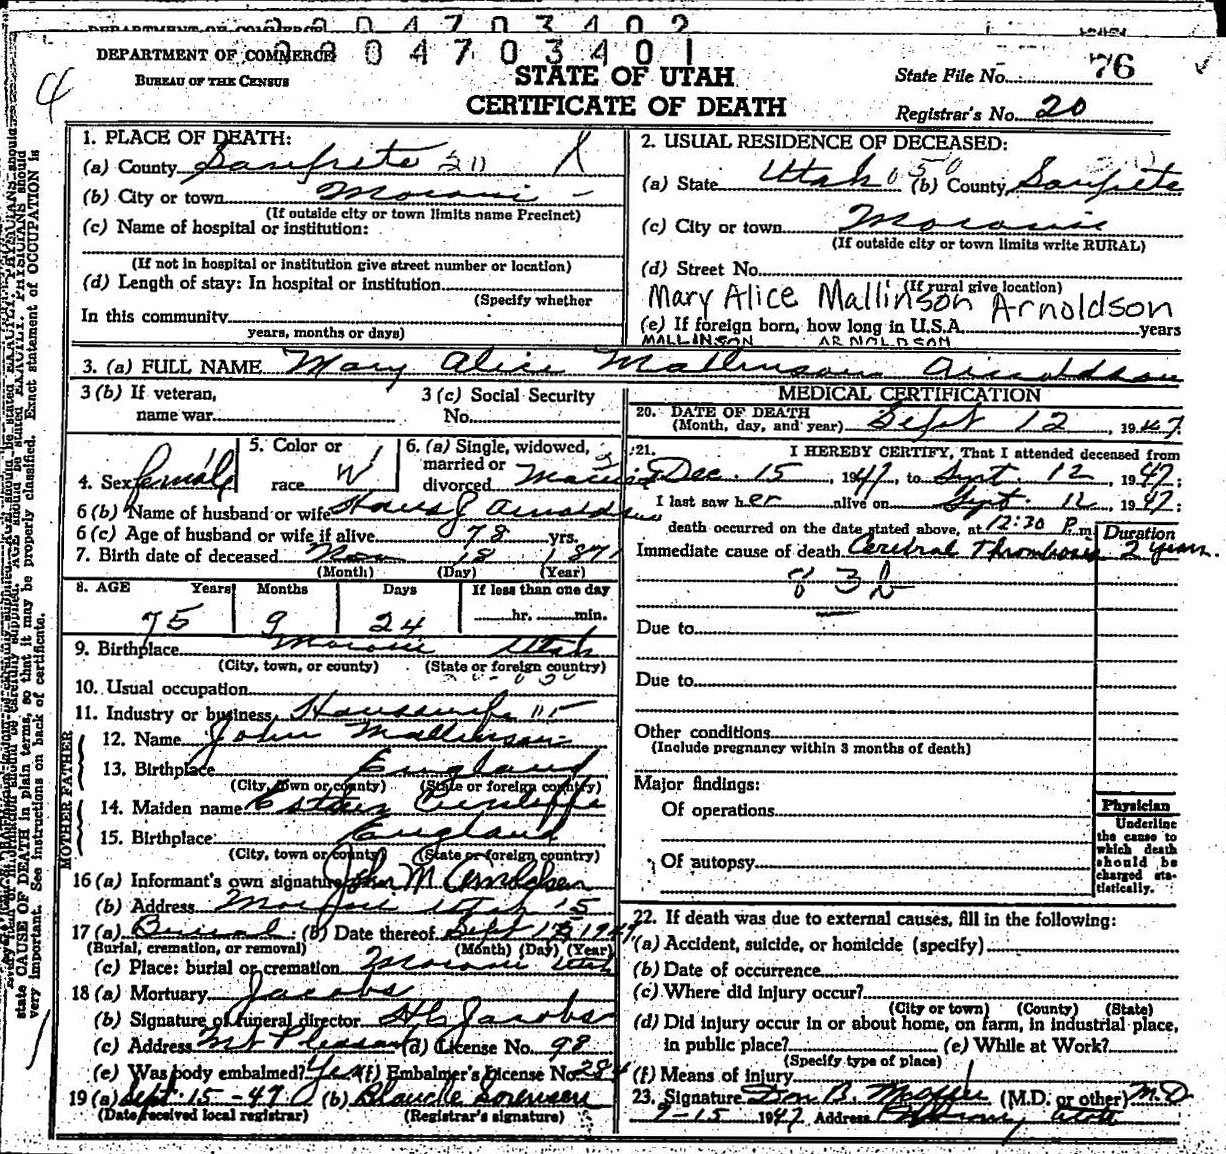 DEPARTMENT OF COMMERCE
BUREAU OF THE CENSUS
2 0 4 7 0 3 4 0 2
0 4 7 0 3 4 0 1
4
STATE OF UTAH
CERTIFICATE OF DEATH
State File No. 76
Registrar's No. 20
1. PLACE OF DEATH:
(a) County Sanpete 20
(b) City or town Moroni
(If outside city or town limits name Precinct)
(c) Name of hospital or institution:
(If not in hospital or institution give street number or location)
(d) Length of stay: In hospital or institution
(Specify whether
In this community
years, months or days)
2. USUAL RESIDENCE OF DECEASED:
(a) State Utah 050 (b) County Sanpete
(c) City or town Moroni
(If outside city or town limits write RURAL)
(d) Street No.
(If rural give location)
Mary Alice Mallinson Arnoldson
(e) If foreign born, how long in U.S.A. years
MALLINSON ARNOLDSON
3. (a) FULL NAME Mary Alice Mallinson Arnoldson
3 (b) If veteran,
name war
3 (c) Social Security
No.
4. Sex female
5. Color or
race W
6. (a) Single, widowed,
married or
divorced Married
6 (b) Name of husband or wife Hans J Arnoldson
6 (c) Age of husband or wife if alive 78 yrs.
7. Birth date of deceased Nov 18 1871
(Month) (Day) (Year)
8. AGE Years Months Days If less than one day
75 9 24 hr. min.
9. Birthplace Moroni Utah
(City, town, or county) (State or foreign country)
10. Usual occupation
11. Industry or business Housewife
FATHER
12. Name John Mallinson
13. Birthplace England
(City, town or county) (State or foreign country)
MOTHER
14. Maiden name Esther
15. Birthplace England
(City, town or county) (State or foreign country)
16 (a) Informant's own signature John M Arnoldsen
(b) Address Moroni Utah
17 (a) Burial (b) Date thereof Sept 15 1947
(Burial, cremation, or removal) (Month) (Day) (Year)
(c) Place: burial or cremation Moroni Utah
18 (a) Mortuary Jacobs
(b) Signature of funeral director H C Jacobs
(c) Address Mt Pleasant (d) License No. 98
(e) Was body embalmed? Yes (f) Embalmer's License No. 284
19 (a) Sept 15-47 (b) Blanche Sorensen
(Date received local registrar) (Registrar's signature)
MEDICAL CERTIFICATION
20. DATE OF DEATH
(Month, day, and year) Sept 12, 1947
21. I HEREBY CERTIFY, That I attended deceased from
Dec. 15, 1941, to Sept. 12, 1947;
I last saw her alive on Sept. 12, 1947;
death occurred on the date stated above, at 12:30 P.m.
Duration
Immediate cause of death Cerebral Thrombosis 2 years.
83b
Due to
Due to
Other conditions
(Include pregnancy within 3 months of death)
Major findings:
Of operations
Of autopsy
Physician
Underline
the cause to
which death
should be
charged sta-
tistically.
22. If death was due to external causes, fill in the following:
(a) Accident, suicide, or homicide (specify)
(b) Date of occurrence
(c) Where did injury occur?
(City or town) (County) (State)
(d) Did injury occur in or about home, on farm, in industrial place,
in public place? (e) While at Work?
(Specify type of place)
(f) Means of injury
23. Signature Don B (M.D. or other) M.D
9-15 1947 Address Utah
state CAUSE OF DEATH in plain terms, so that it may be properly classified. Exact statement of OCCUPATION is
very important. See instructions on back of certificate.